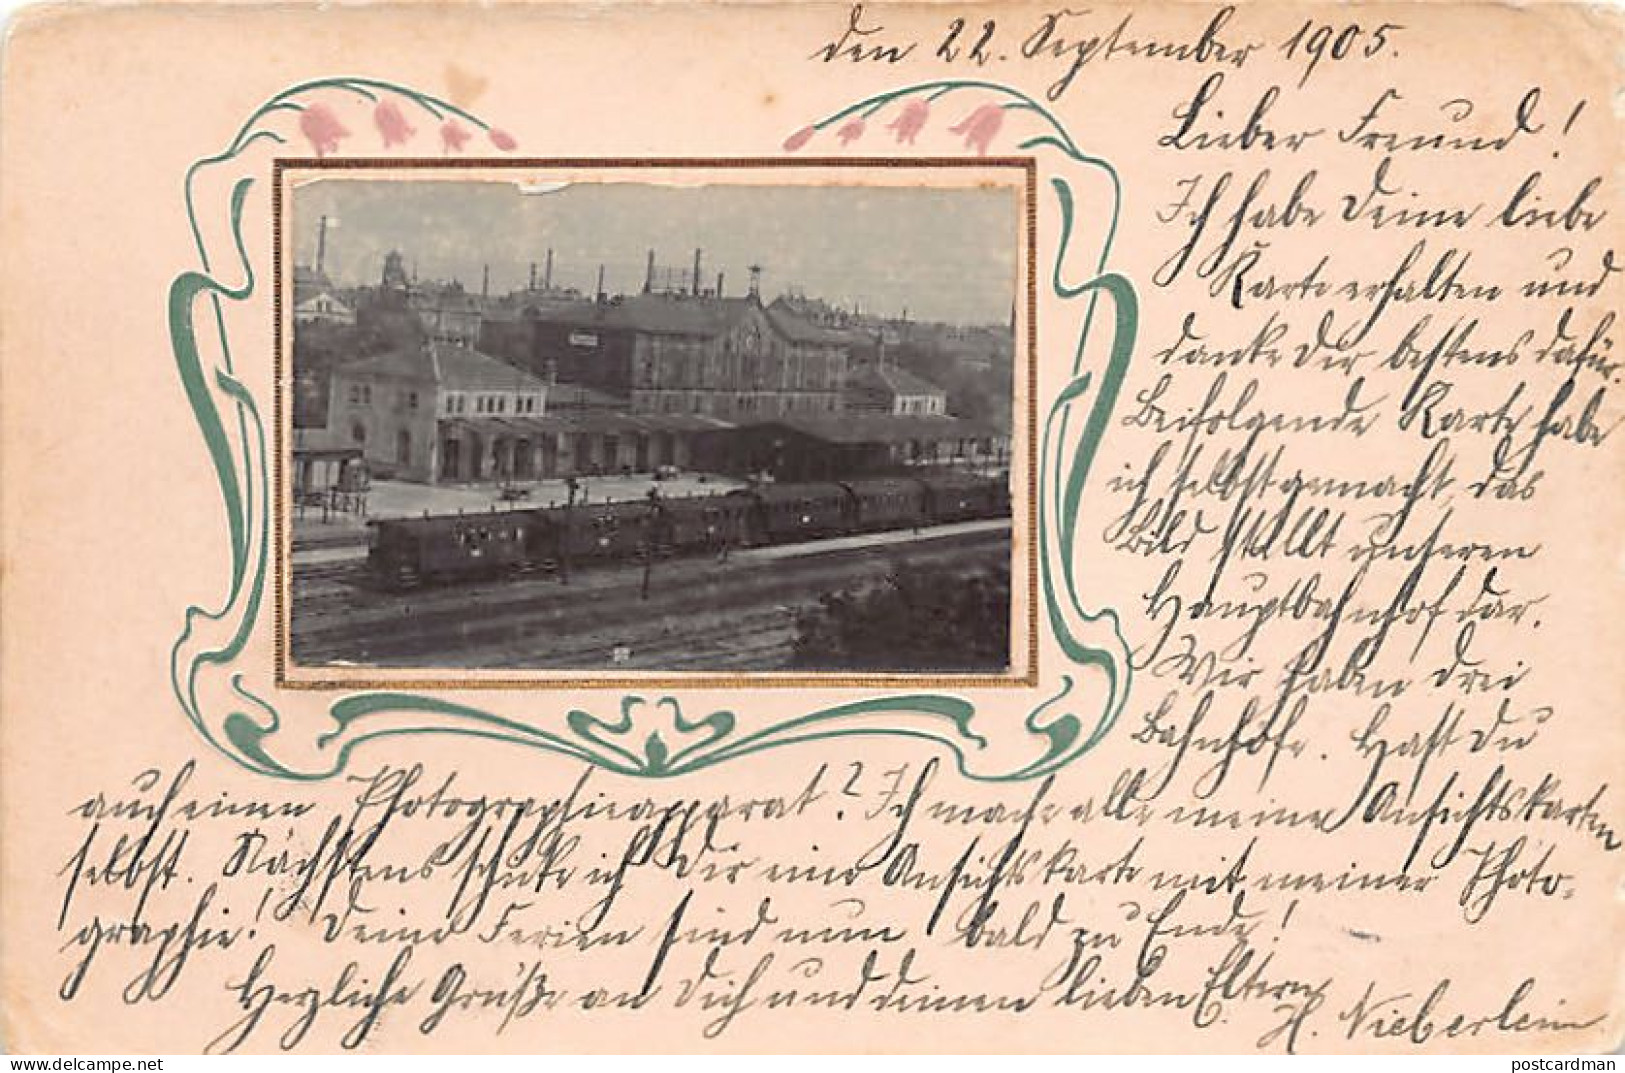 den 22. September 1905.
Lieber Freund!
Ich habe Deine liebe
Karte erhalten und
danke Dir bestens dafür.
Beifolgende Karte habe
ich selbst gemacht, das
Bild stellt unseren
Hauptbahnhof dar.
Wir haben drei
Bahnhöfe. Hast Du
auch einen Photographieapparat? Ich mache alle meine Ansichtskarten
selbst. Nächstens schicke ich Dir eine Ansichtskarte mit meiner Photo-
graphie! Deine Ferien sind nun bald zu Ende!
Herzliche Grüße an Dich und deinen lieben Eltern
H. Nieberlein
www.delcampe.net
postcardman